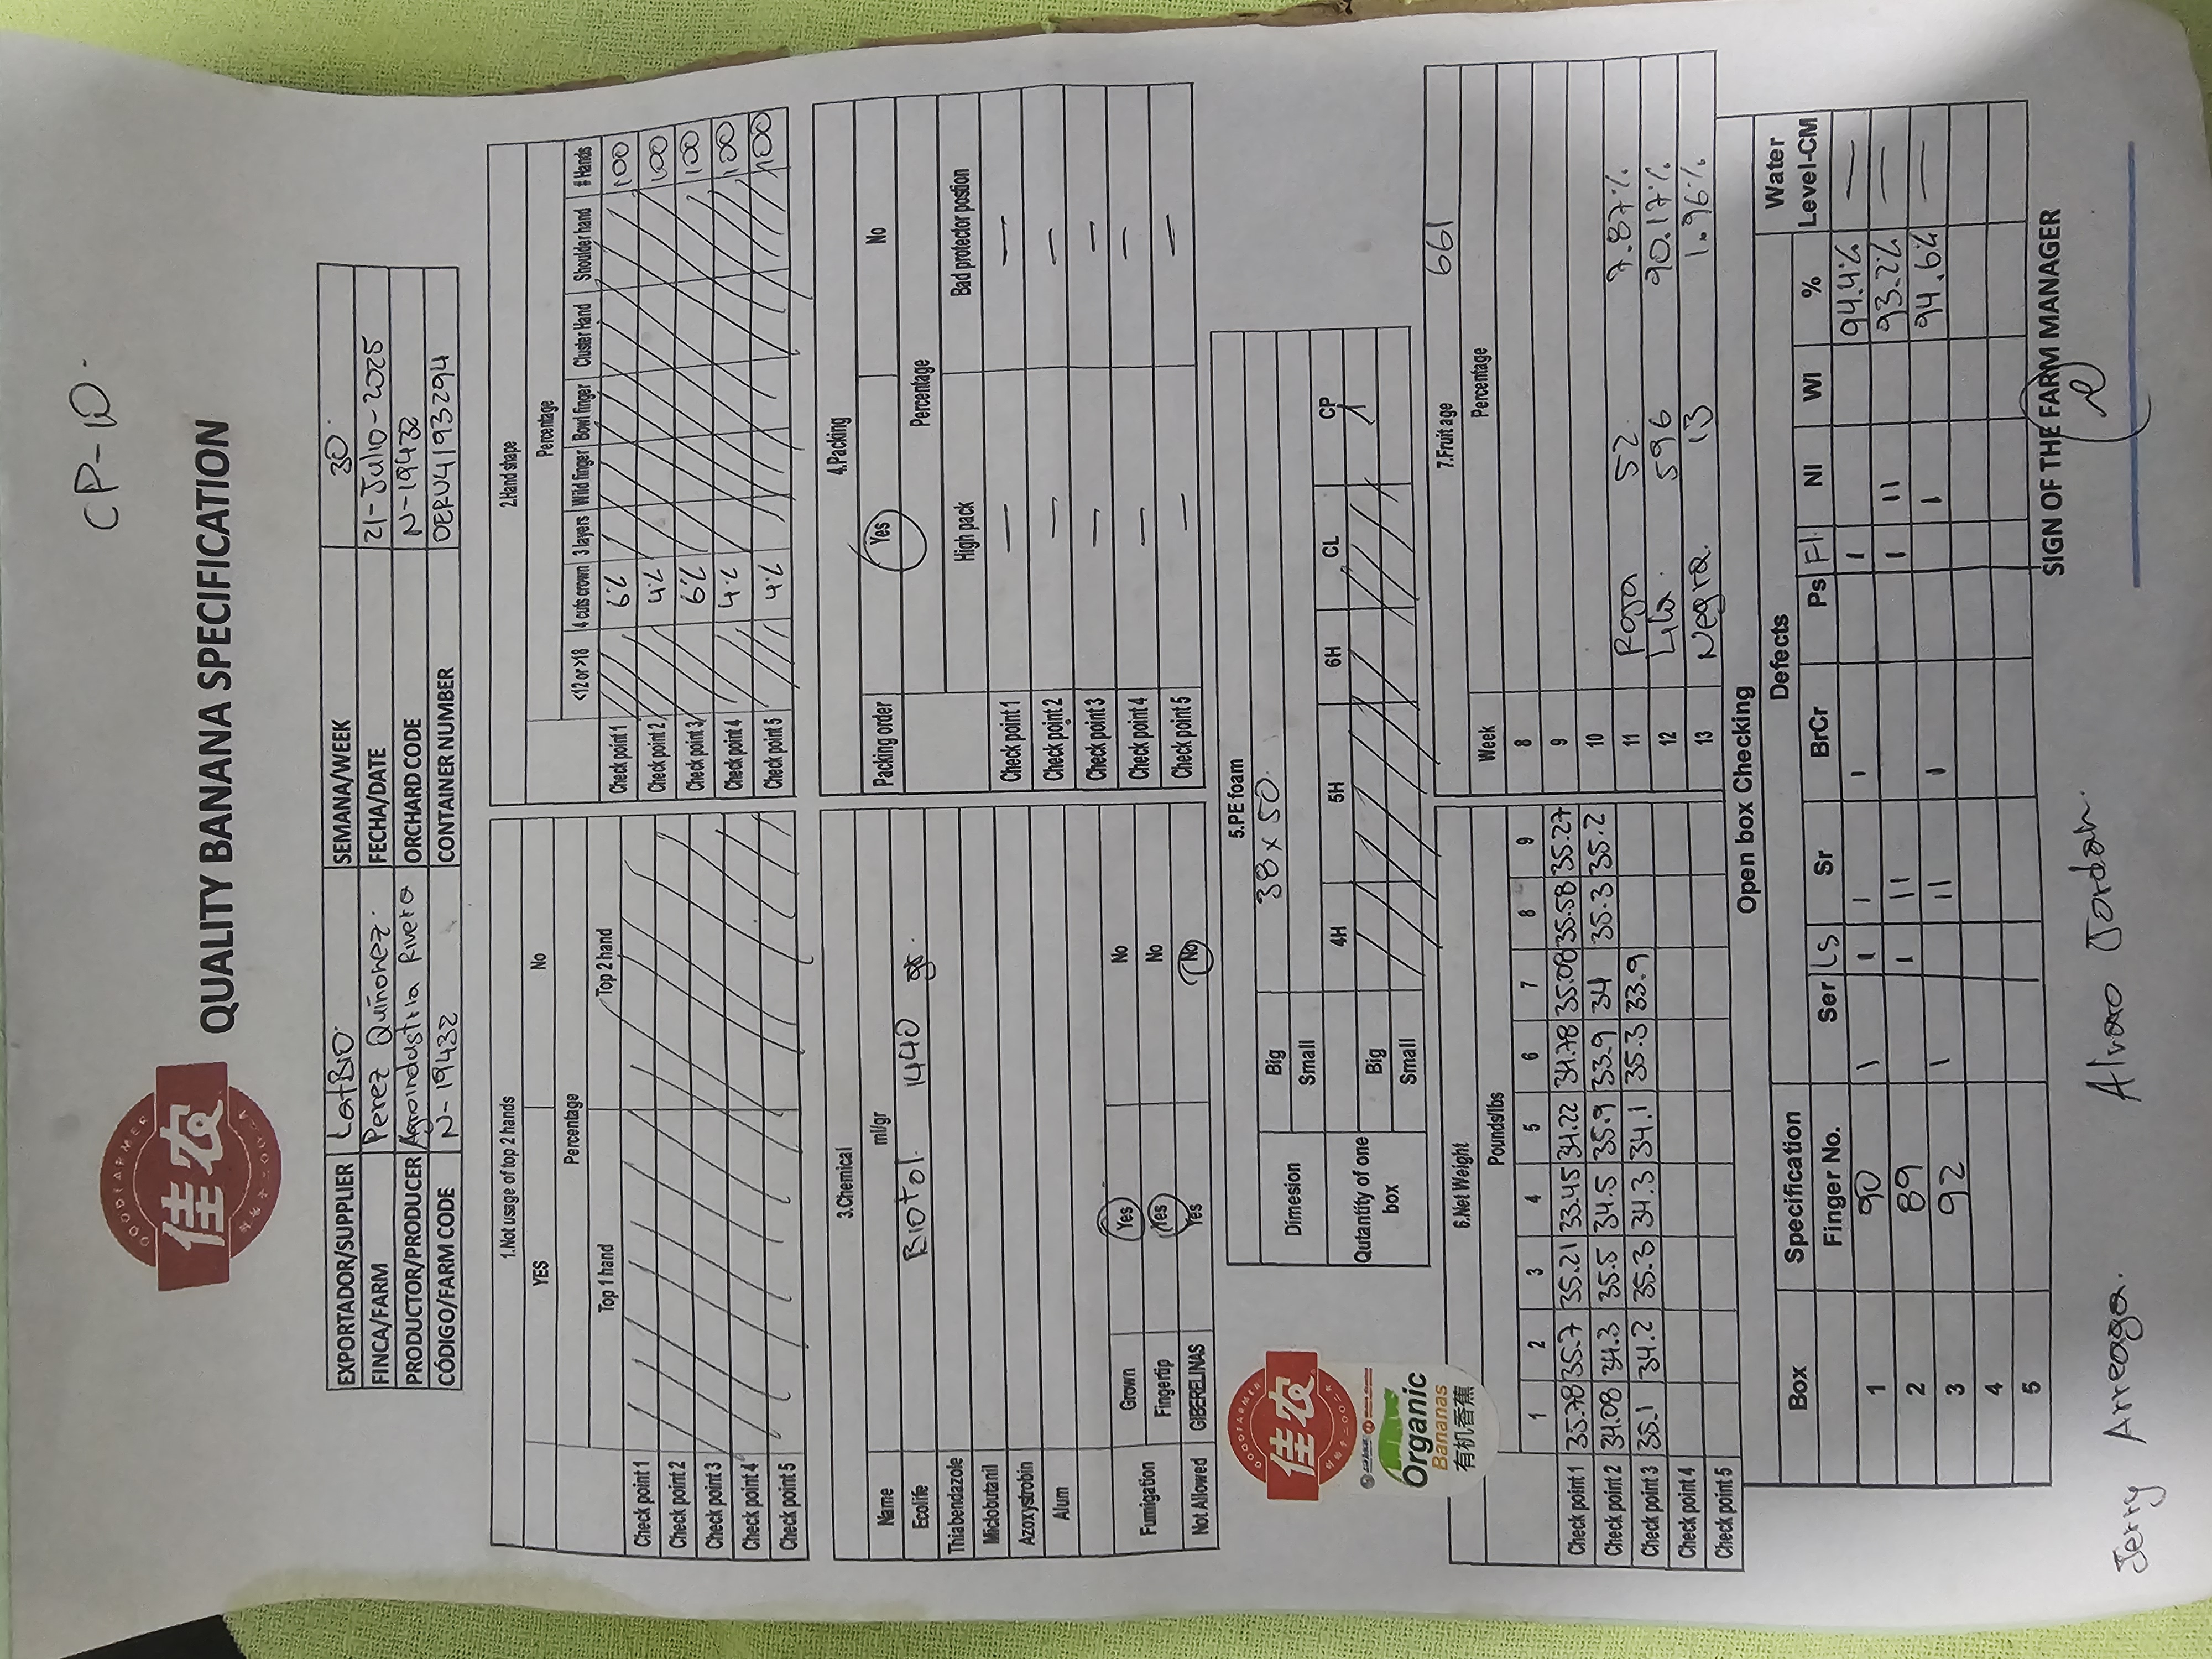 CP-10.
GOODFARMER
佳农
QUALITY BANANA SPECIFICATION
EXPORTADOR/SUPPLIER LatBio. SEMANA/WEEK 30
FINCA/FARM Perez Quiñonez. FECHA/DATE 21-Julio-2025
PRODUCTOR/PRODUCER Agroindustria Rivera ORCHARD CODE N-19432
CÓDIGO/FARM CODE N-19432 CONTAINER NUMBER OERU4193294
1.Not usage of top 2 hands
YES No
Percentage
Top 1 hand Top 2 hand
Check point 1
Check point 2
Check point 3
Check point 4
Check point 5
2.Hand shape
Percentage
<12 or >18 4 cuts crown 3 layers Wild finger Bowl finger Cluster Hand Shoulder hand # Hands
Check point 1 6% 100
Check point 2 4% 100
Check point 3 6% 100
Check point 4 4% 100
Check point 5 4% 100
3.Chemical
Name ml/gr
Ecolife Biotol. 1440 gr.
Thiabendazole
Miclobutanil
Azoxystrobin
Alum
Fumigation Grown Yes No
Fingertip Yes No
Not Allowed GIBERELINAS Yes No
4.Packing
Packing order Yes No
Percentage
High pack Bad protector postion
Check point 1 — —
Check point 2 — —
Check point 3 — —
Check point 4 — —
Check point 5 — —
GOODFARMER
佳农
Organic
Bananas
有机香蕉
5.PE foam
Dimesion Big 38x50.
Small
4H 5H 6H CL CP
Qutantity of one box Big 1
Small
6.Net Weight
Pounds/lbs
1 2 3 4 5 6 7 8 9
Check point 1 35.78 35.7 35.21 33.45 34.22 34.78 35.08 35.58 35.27
Check point 2 34.08 34.3 35.5 34.5 35.9 33.9 34 35.3 35.2
Check point 3 35.1 34.2 35.3 34.3 34.1 35.3 33.9
Check point 4
Check point 5
7.Fruit age 661
Week Percentage
8
9
10
11 Roja 52 7.87%
12 Lila. 596 90.17%
13 Negra. 13 1.96%
Open box Checking
Box Specification Defects Water
Finger No. Ser LS Sr BrCr Ps Fl NI WI % Level-CM
1 90 I I I I I 94.4% —
2 89 I II I II 93.2% —
3 92 I II I I 94.6% —
4
5
SIGN OF THE FARM MANAGER
Jerry Arreaga. Alvaro Jordan.